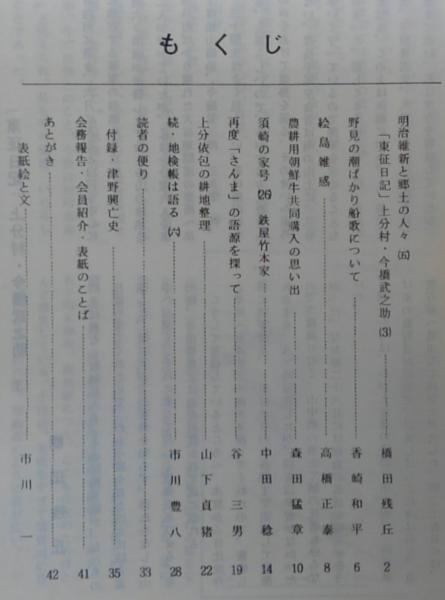 もくじ
明治維新と郷土の人々 (五)
「東征日記」上分村・今橋武之助 (3)……橋田残丘 2
野見の潮ばかり船歌について……香崎和平 6
絵島雑感……高橋正泰 8
農耕用朝鮮牛共同購入の思い出……森田猛章 10
須崎の家号 (26) 鉄屋竹本家……中田稔 14
再度「さんま」の語源を探って……谷三男 19
上分依包の耕地整理……山下貞猪 22
続・地検帳は語る (六)……市川豊八 28
読者の便り……33
付録・津野興亡史……35
会務報告・会員紹介・表紙のことば……41
あとがき……42
表紙絵と文……市川一